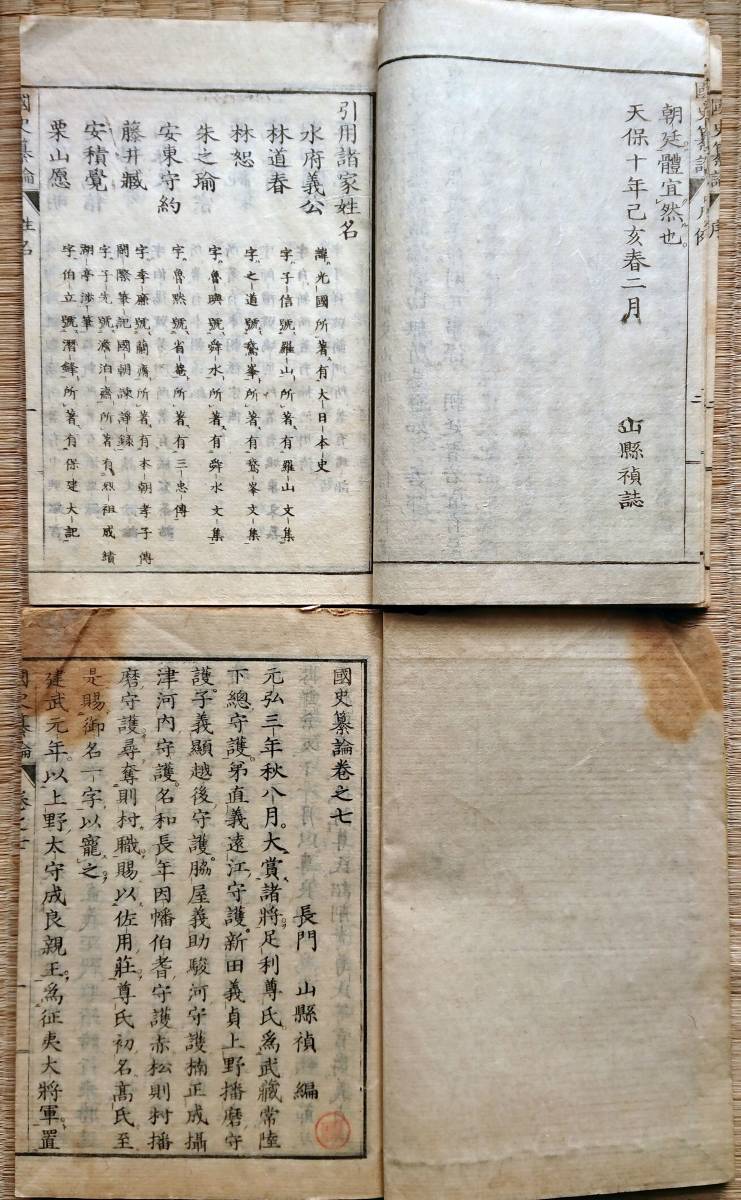 朝廷體宜然也。
天保十年己亥春二月
山縣禎誌
引用諸家姓名
水府義公 諱光國所著有大日本史
林道春 字子信號羅山所著有羅山文集
林恕 字之道號鵞峯所著有鵞峯文集
朱之瑜 字魯璵號舜水所著有舜水文集
安東守約 字魯黙號省菴所著有三忠傳
藤井臧 字季廉號蘭齋所著有本朝孝子傳
閑際筆記國朝諫諍錄
安積覺 字子先號澹泊齋所著有烈祖成績
湖亭涉筆
栗山愿 字伯立號潛鋒所著有保建大記
國史纂論 姓名
國史纂論卷之七
長門 山縣禎編
元弘三年秋八月。大賞諸將。足利尊氏爲武藏常陸
下總守護。弟直義遠江守護。新田義貞上野播磨守
護。子義顯越後守護。脇屋義助駿河守護楠正成攝
津河内守護。名和長年因幡伯耆守護赤松則村播
磨守護。尋奪則村職。賜以佐用莊。尊氏初名高氏至
是賜御名一字以寵之。
建武元年。以上野太守成良親王。爲征夷大將軍。置
國史纂論 卷之七